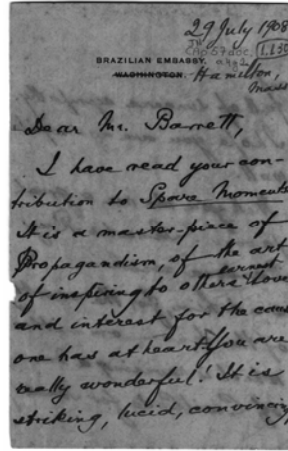 29 July 1908
CAp 57 doc.
BRAZILIAN EMBASSY.
WASHINGTON. Hamilton,
Mass
Dear Mr. Barrett,
I have read your con-
tribution to Spare Moments
It is a master-piece of
Propagandism, of the art
of inspiring to others earnest love
and interest for the cause
one has at heart. You are
really wonderful! It is
striking, lucid, convincing,